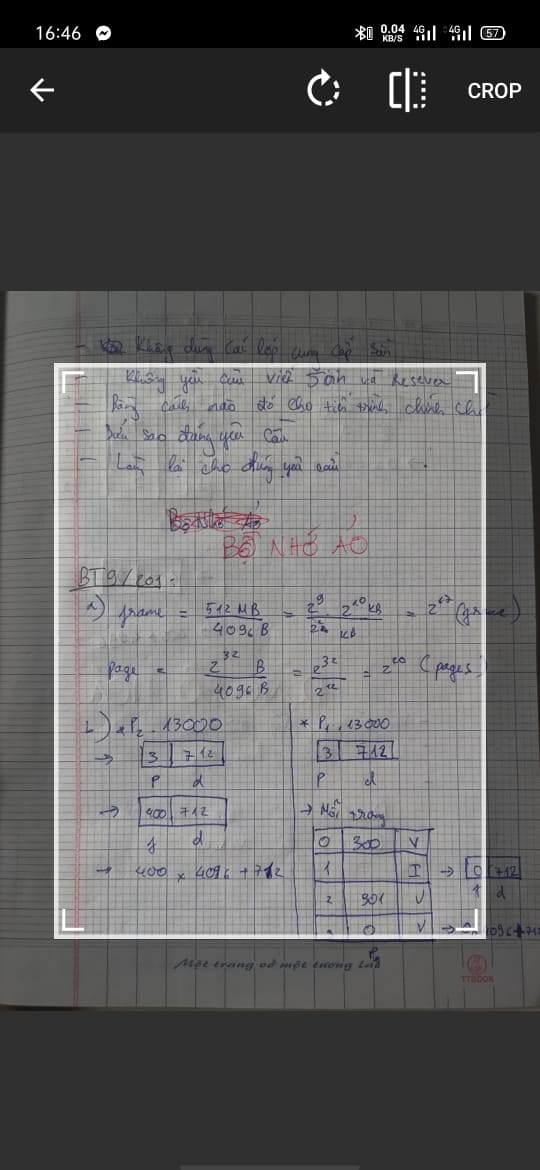 16:46 0.04 KB/S 4G 4G 57
CROP
- Không dùng các lớp cung cấp sẵn
- Không yêu cầu viết và Reserver
- Bằng cách nào đó cho tiến trình chính
- sao đúng yêu cầu
- Làm lại cho đúng yêu cầu
Bộ Nhớ Ảo
BỘ NHỚ ẢO
BT9/201.
a) frame = 512 MB / 4096 B = 2^9 . 2^10 KB / 2^2 KB = 2^17 (frame)
Page = 2^32 B / 4096 B = 2^32 / 2^12 = 2^20 (pages)
b) * P2 . 13000
→ 3 712
P d
→ 400 712
f d
→ 400 x 4096 + 712
* P1 . 13000
3 712
P d
→ trang
0 300 V
1 I → 0 712
f d
2 901 V
0 V → 4096+712
Một trang vở một tương lai
TTBOOK